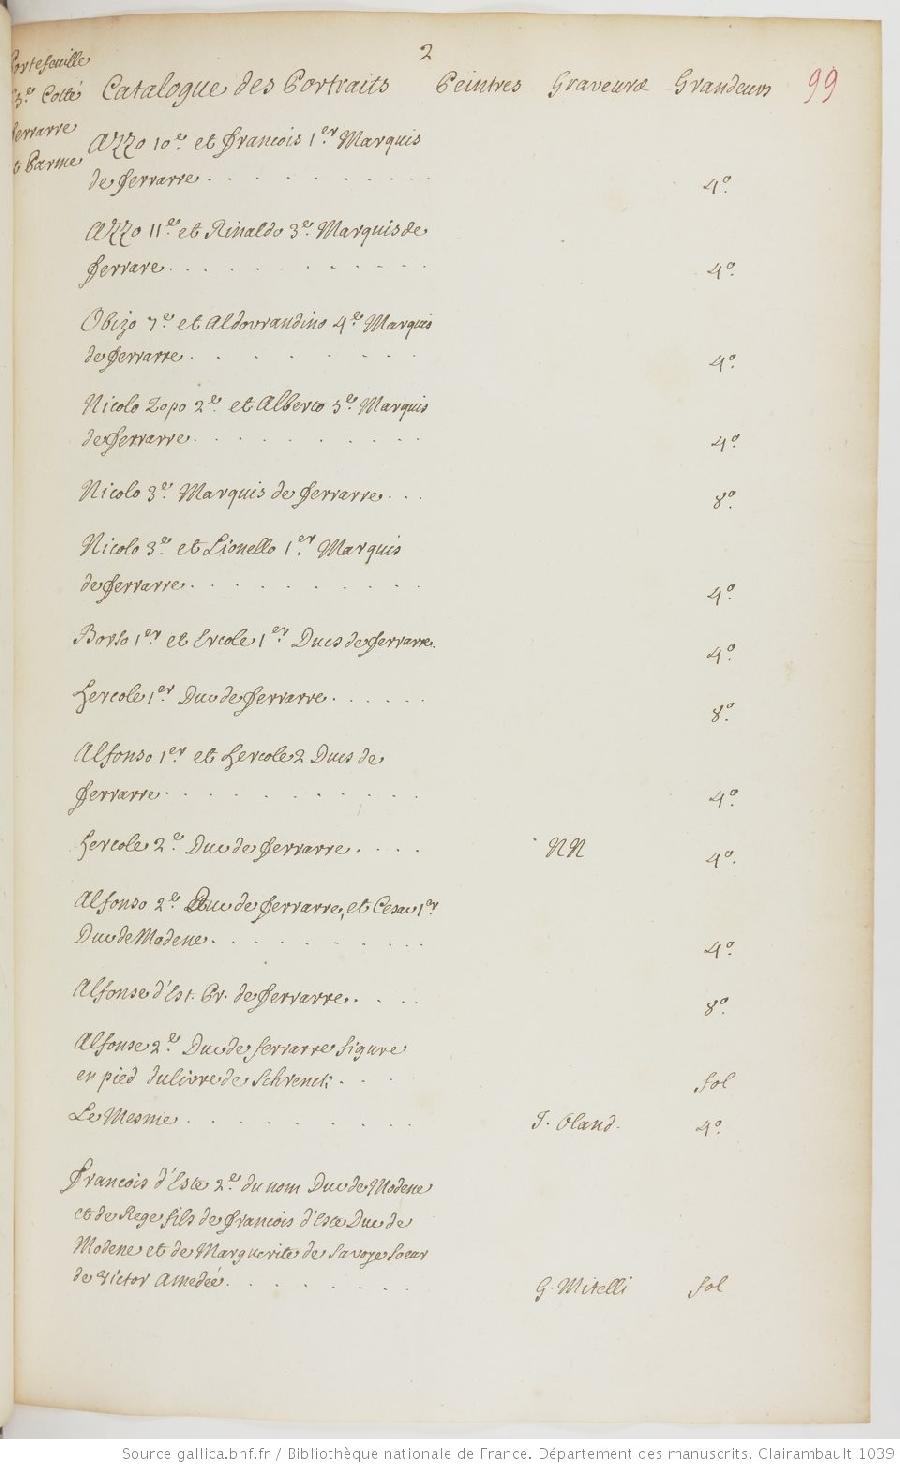 2
Portefeuille
3e. Cotté
Ferrarre
Parme
Catalogue des Portraits Peintres Graveurs Grandeurs 99
Azzo 10e. et Francois 1er. Marquis
de Ferrarre . . . . . . . . . . 4o.
Azzo 11e. et Rinaldo 3e. Marquis de
Ferrare . . . . . . . . . . 4o.
Obizo 7e. et Aldovrandino 4e. Marquis
de Ferrarre . . . . . . . . 4o.
Nicolo Zopo 2e. et Alberto 5e. Marquis
de Ferrarre . . . . . . . . 4o.
Nicolo 3e. Marquis de Ferrarre . . . 8o.
Nicolo 3e. et Lionello 1er. Marquis
de Ferrarre . . . . . . . . . 4o.
Borso 1er. et Ercole 1er. Ducs de Ferrarre. 4o.
Hercole 1er. Duc de Ferrarre . . . . . 8o.
Alfonso 1er. et Hercole 2 Ducs de
Ferrarre . . . . . . . . . . 4o.
Hercole 2e. Duc de Ferrarre . . . . NN 4o.
Alfonso 2e. Duc de Ferrarre, et Cesar 1er
Duc de Modene . . . . . . . . 4o.
Alfonse d'Est. Pr. de Ferrarre . . . . 8o.
Alfonse 2e. Duc de ferrarre figure
en pied du livre de Schrenck . . . fol
Le Mesme . . . . . . . . . . J. Oland. 4o.
Francois d'Este 2e. du nom Duc de Modene
et de Rege fils de francois d'Este Duc de
Modene et de Marguerite de Savoye Soeur
de Victor Amedée . . . . . . . . G. Mitelli fol
Source gallica.bnf.fr / Bibliothèque nationale de France. Département des manuscrits. Clairambault 1039